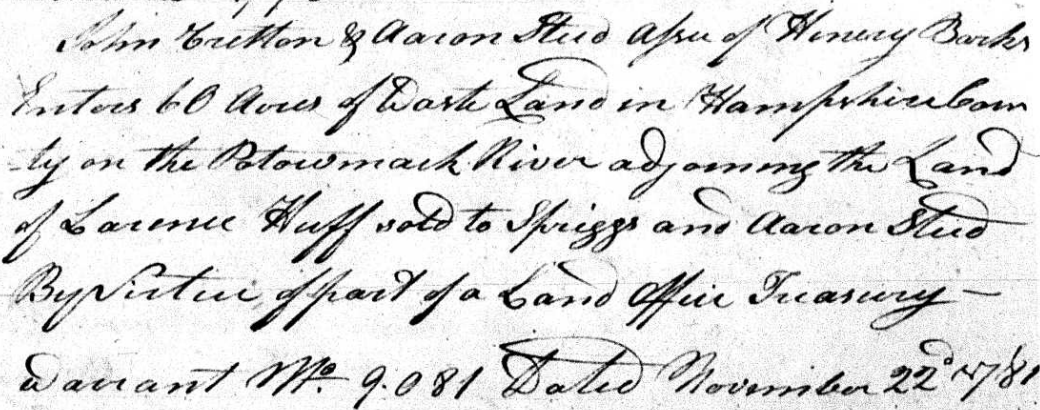 John Tretton & Aaron Steed Assee of Hinery Barks
Enters 60 Acres of Waste Land in Hampshire Coun
-ty on the Potowmack River adjoining the Land
of Larence Huff sold to Spriggs and Aaron Steed
By Virtue of part of a Land Office Treasury —
Warrant No. 9.081 Dated November 22d 1781